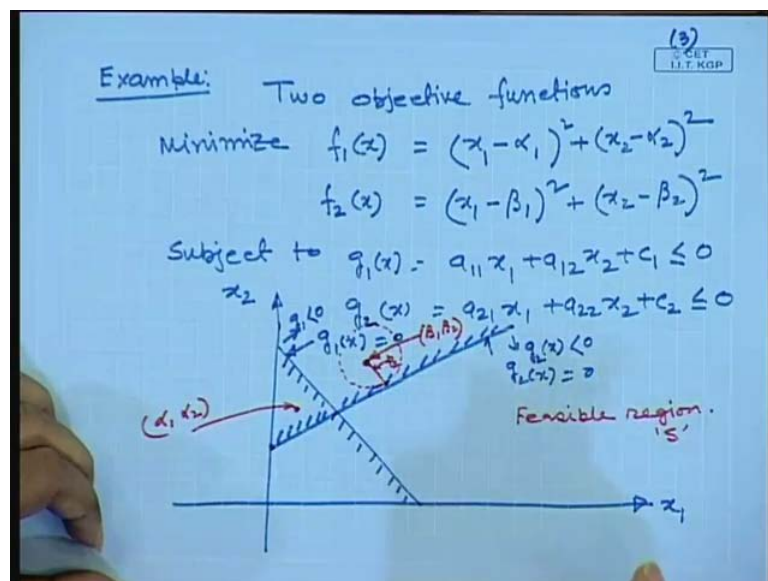 (3)
© CET
I.I.T. KGP
Example: Two objective functions
Minimize f₁(x) = (x₁-α₁)² + (x₂-α₂)²
f₂(x) = (x₁-β₁)² + (x₂-β₂)²
Subject to g₁(x) = a₁₁x₁ + a₁₂x₂ + c₁ ≤ 0
g₂(x) = a₂₁x₁ + a₂₂x₂ + c₂ ≤ 0
x₂
g₁<0
g₁(x) = 0
(β₁,β₂)
g₂(x) < 0
g₂(x) = 0
(α₁ α₂)
Feasible region.
'S'
x₁